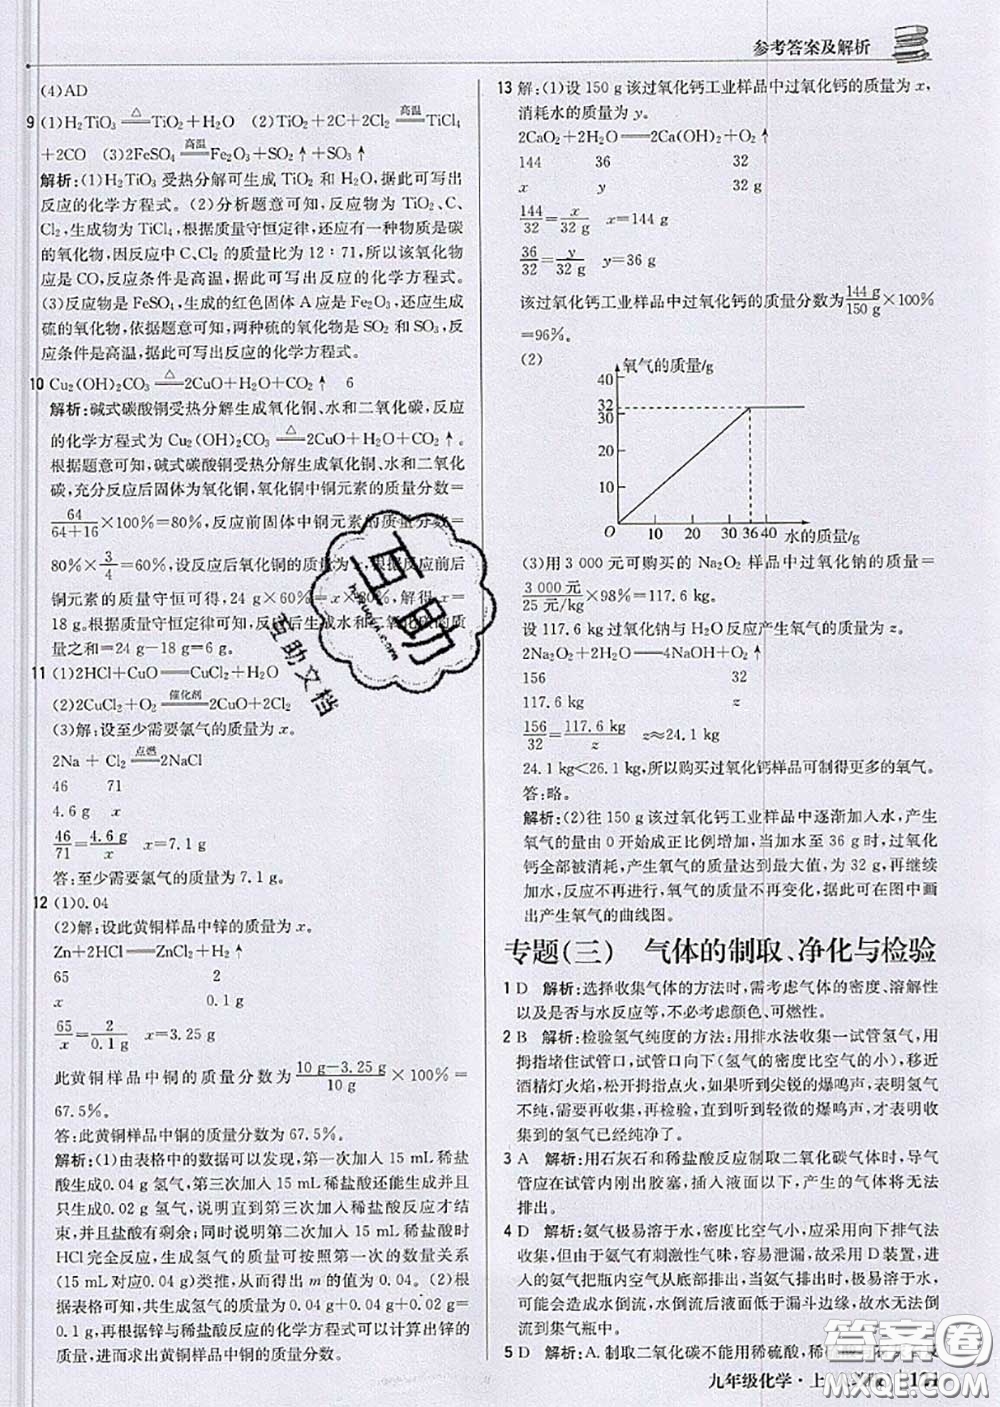 参考答案及解析
(4)AD
9 (1)H₂TiO₃ =△= TiO₂+H₂O (2)TiO₂+2C+2Cl₂ =高温= TiCl₄
+2CO (3)2FeSO₄ =高温= Fe₂O₃+SO₂↑+SO₃↑
解析:(1)H₂TiO₃ 受热分解可生成 TiO₂ 和 H₂O,据此可写出
反应的化学方程式。(2)分析题意可知,反应物为 TiO₂、C、
Cl₂,生成物为 TiCl₄,根据质量守恒定律,还应有一种物质是碳
的氧化物,因反应中 C、Cl₂ 的质量比为 12∶71,所以该氧化物
应是 CO,反应条件是高温,据此可写出反应的化学方程式。
(3)反应物是 FeSO₄,生成的红色固体 A 应是 Fe₂O₃,还应生成
硫的氧化物,依据题意可知,两种硫的氧化物是 SO₂ 和 SO₃,反
应条件是高温,据此可写出反应的化学方程式。
10 Cu₂(OH)₂CO₃ =△= 2CuO+H₂O+CO₂↑ 6
解析:碱式碳酸铜受热分解生成氧化铜、水和二氧化碳,反应
的化学方程式为 Cu₂(OH)₂CO₃ =△= 2CuO+H₂O+CO₂↑。
根据题意可知,碱式碳酸铜受热分解生成氧化铜、水和二氧化
碳,充分反应后固体为氧化铜,氧化铜中铜元素的质量分数=
64/(64+16)×100%=80%,反应前固体中铜元素的质量分数=
80%×3/4=60%,设反应后氧化铜的质量为 x,根据反应前后
铜元素的质量守恒可得,24 g×60%=x×80%,解得 x=
18 g。根据质量守恒定律可知,反应后生成水和二氧化碳的质
量之和=24 g-18 g=6 g。
11 (1)2HCl+CuO══CuCl₂+H₂O
(2)2CuCl₂+O₂ =催化剂= 2CuO+2Cl₂
(3)解:设至少需要氯气的质量为 x。
2Na + Cl₂ =点燃= 2NaCl
46 71
4.6 g x
46/71=4.6 g/x x=7.1 g
答:至少需要氯气的质量为 7.1 g。
12 (1)0.04
(2)解:设此黄铜样品中锌的质量为 x。
Zn+2HCl══ZnCl₂+H₂↑
65 2
x 0.1 g
65/x=2/0.1 g x=3.25 g
此黄铜样品中铜的质量分数为(10 g-3.25 g)/10 g×100%=
67.5%。
答:此黄铜样品中铜的质量分数为 67.5%。
解析:(1)由表格中的数据可以发现,第一次加入 15 mL 稀盐
酸生成 0.04 g 氢气,第三次加入稀盐酸还能生成氢气,并且
只生成 0.02 g 氢气,说明直到第三次加入稀盐酸反应才结
束,并且盐酸有剩余;同时说明第二次加入 15 mL 稀盐酸时
HCl 完全反应,生成氢气的质量可按照第一次的数量关系
(15 mL 对应 0.04 g)类推,从而得出 m 的值为 0.04。(2)根
据表格可知,共生成氢气的质量为 0.04 g+0.04 g+0.02 g=
0.1 g,再根据锌与稀盐酸反应的化学方程式可以计算出锌的
质量,进而求出黄铜样品中铜的质量分数。
13 解:(1)设 150 g 该过氧化钙工业样品中过氧化钙的质量为 x,
消耗水的质量为 y。
2CaO₂+2H₂O══2Ca(OH)₂+O₂↑
144 36 32
x y 32 g
144/32=x/32 g x=144 g
36/32=y/32 g y=36 g
该过氧化钙工业样品中过氧化钙的质量分数为144 g/150 g×100%
=96%。
(2)
氧气的质量/g
40
32
30
20
10
O 10 20 30 36 40 水的质量/g
(3)用 3 000 元可购买的 Na₂O₂ 样品中过氧化钠的质量为
3 000 元/25 元/kg×98%=117.6 kg。
设 117.6 kg 过氧化钠与 H₂O 反应产生氧气的质量为 z。
2Na₂O₂+2H₂O══4NaOH+O₂↑
156 32
117.6 kg z
156/32=117.6 kg/z z≈24.1 kg
24.1 kg<26.1 kg,所以购买过氧化钙样品可制得更多的氧气。
答:略。
解析:(2)往 150 g 该过氧化钙工业样品中逐渐加入水,产生
氧气的量由 0 开始成正比例增加,当加水至 36 g 时,过氧化
钙全部被消耗,产生氧气的质量达到最大值,为 32 g,再继续
加水,反应不再进行,氧气的质量不再变化,据此可在图中画
出产生氧气的曲线图。
专题(三) 气体的制取、净化与检验
1 D 解析:选择收集气体的方法时,需考虑气体的密度、溶解性
以及是否与水反应等,不必考虑颜色、可燃性。
2 B 解析:检验氢气纯度的方法:用排水法收集一试管氢气,用
拇指堵住试管口,试管口向下(氢气的密度比空气的小),移近
酒精灯火焰,松开拇指点火,如果听到尖锐的爆鸣声,表明氢气
不纯,需要再收集,再检验,直到听到轻微的爆鸣声,表明收
集到的氢气已经纯净了。
3 A 解析:用石灰石和稀盐酸反应制取二氧化碳气体时,导气
管应在试管内刚出胶塞,插入液面以下,产生的气体将无法
排出。
4 D 解析:氨气极易溶于水,密度比空气小,应采用向下排气法
收集,但由于氨气有刺激性气味,容易泄漏,故采用 D 装置,进
入的氨气把瓶内空气从底部排出,当氨气排尽时,极易溶于水,
可能会造成水倒流,水倒流后液面低于漏斗边缘,故水无法倒
流到集气瓶中。
5 D 解析:A.制取二氧化碳不能用稀硫酸,
九年级化学·上
互助
互助文档
答案圈
MXQE.COM